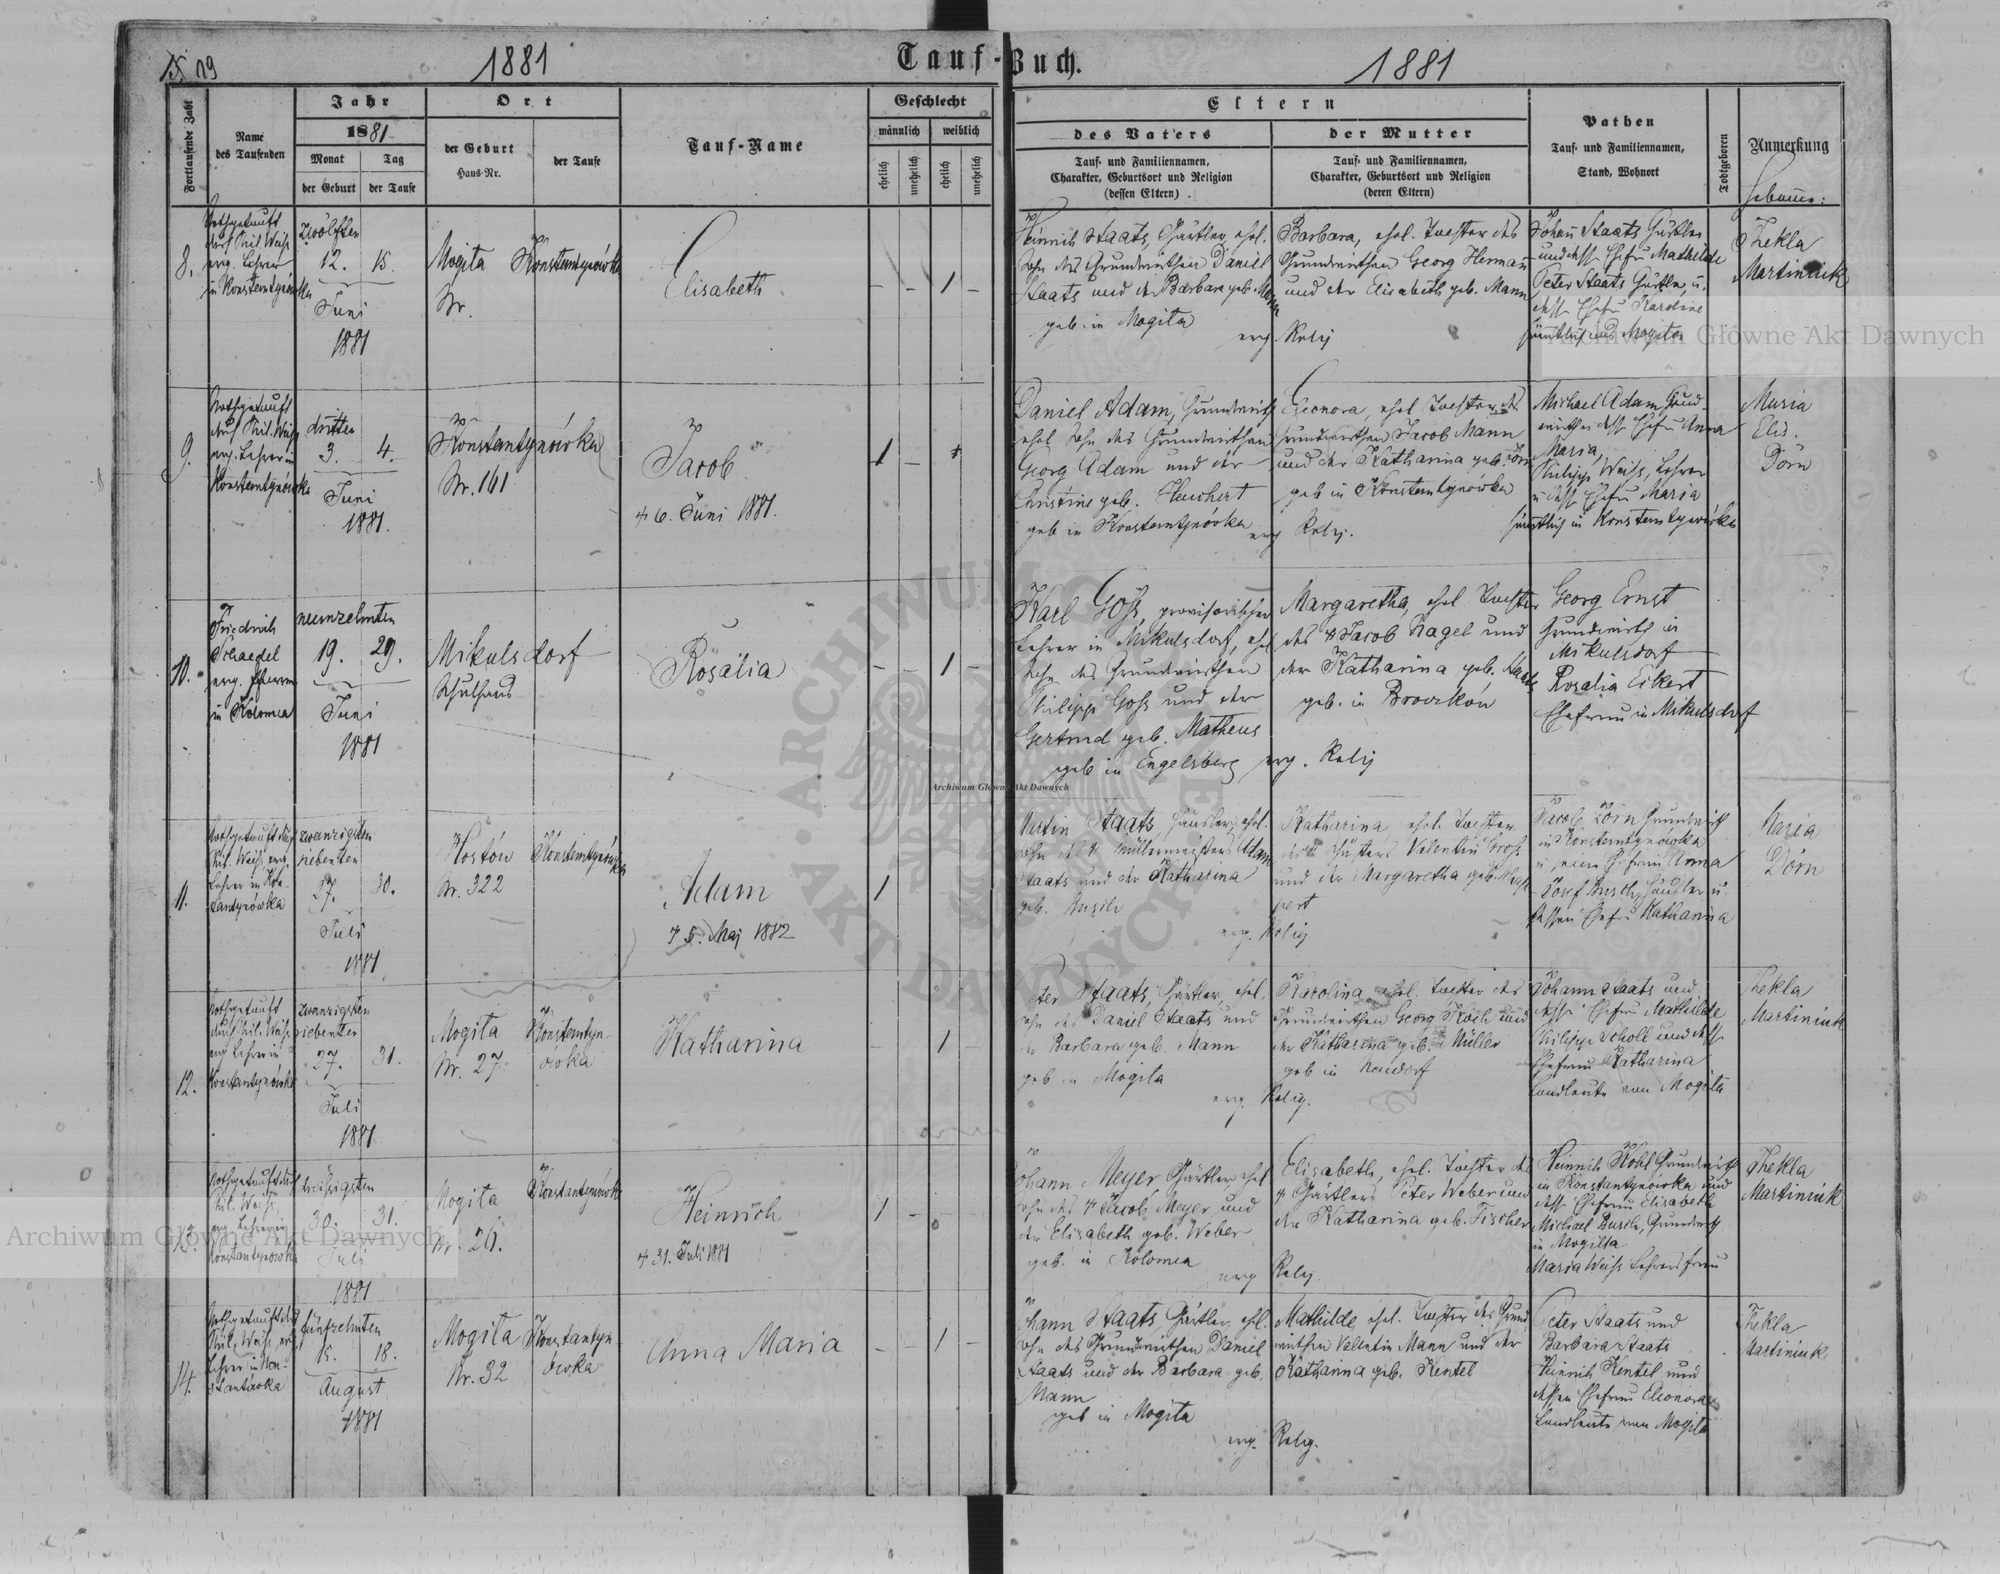 15. 19
1881
Tauf-Buch.
1881
Fortlaufende Zahl
Name
des Taufenden
Jahr
1881
Monat
Tag
der Geburt
der Taufe
Ort
der Geburt
Haus-Nr.
der Taufe
Tauf-Name
Geschlecht
männlich
weiblich
ehelich
unehelich
ehelich
unehelich
Eltern
des Vaters
Tauf- und Familiennamen,
Charakter, Geburtsort und Religion
(dessen Eltern)
der Mutter
Tauf- und Familiennamen,
Charakter, Geburtsort und Religion
(deren Eltern)
Pathen
Tauf- und Familiennamen,
Stand, Wohnort
Todtgeboren
Anmerkung
Hebamme:
8.
Nothgetauft
durch Phil. Weiss
evg. Lehrer
in Konstantynówka
zwölften
12. 15.
Juni
1881
Mogita
Nr.
Konstantynówka
Elisabeth
– – 1 –
Heinrich Staats, Gärtler, ehel.
Sohn des Grundwirthen Daniel
Staats und der Barbara geb. Mann
geb. in Mogita
Barbara, ehel. Tochter des
Grundwirthen Georg Hermann
und der Elisabeth geb. Mann
evg. Relig
Johann Staats Gärtler
und dess. Ehefr. Mathilde
Peter Staats Gärtler, u.
dess. Ehefr. Karoline
sämtlich aus Mogita
Thekla
Martiniuk
9.
Nothgetauft
durch Phil. Weiss
evg. Lehrer in
Konstantynówka
dritten
3. 4.
Juni
1881.
Konstantynówka
Nr. 161
Jacob
+ 6. Juni 1881.
1 –
Daniel Adam, Grundwirth
ehel. Sohn des Grundwirthen
Georg Adam und der
Christine geb. Heuchert
geb in Konstantynówka
Eleonora, ehel Tochter des
Grundwirthen Jacob Mann
und der Katharina geb. Zorn
geb in Konstantynówka
evg Relig.
Michael Adam Grund-
wirth u. dess. Ehefr. Anna
Maria,
Philipp Weiss, Lehrer
u. dess. Ehefr. Maria
sämtlich in Konstantynówka
Maria
Elis.
Dörn
10.
Friedrich
Schaedel
evg. Pfarrer
in Kolomea
neunzehnten
19. 29.
Juni
1881
Mikulsdorf
Schulhaus
Rosalia
– – 1 –
Karl Goss, provisorischer
Lehrer in Mikulsdorf, ehel
Sohn des Grundwirthen
Philipp Goss und der
Gertrud geb. Matheus
geb in Engelsberg
Margaretha, ehel Tochter
des + Jacob Nagel und
der Katharina geb. Staats
geb. in
evg. Relig
Georg Ernst
Grundwirth in
Mikulsdorf
Rosalia Eikert
Ehefrau in Mikulsdorf
11.
Nothgetauft durch
Phil. Weiss, evg.
Lehrer in Kons-
tantynówka
zwanzigsten
siebenten
27. 30.
Juli
1881
Hostów
Nr. 322
Konstantynówka
Adam
+ 5. Maj 1882
1
Martin Staats, Häusler, ehel.
Sohn des + Müllermeisters Adam
Staats und der Katharina
geb. Busch
Katharina, ehel. Tochter
des + Schusters Valentin Gross
und der Margaretha geb.
evg. Relig
Jacob Zorn Grundwirth
in Konstantynówka
u. seine Ehefrau Anna
Josef Busch, Häusler u.
dessen Ehefr. Katharina
Maria
Dörn
12.
Nothgetauft
durch Phil. Weiss
evg Lehrer in
Konstantynówka
zwanzigsten
siebenten
27. 31.
Juli
1881
Mogita
Nr. 27
Konstantyn-
ówka
Katharina
– 1 –
Peter Staats, Gärtler, ehel.
Sohn des Daniel Staats und
der Barbara geb. Mann
geb in Mogita
Karolina, ehel. Tochter des
Grundwirthen Georg Koch und
der Katharina geb. Müller
geb in Neudorf
evg. Relig.
Johann Staats und
dess. Ehefr. Mathilde
Philipp Scholl und dess
Ehefrau Katharina
Landleute von Mogita
Thekla
Martiniuk
13.
Nothgetauft durch
Phil. Weiss,
evg. Lehrer in
Konstantynówka
dreissigsten
30. 31.
Juli
1881
Mogita
Nr. 26.
Konstantynówka
Heinrich
+ 31. Juli 1881
1 – –
Johann Meyer Gärtler, ehel
Sohn des + Jacob Meyer und
der Elisabeth geb. Weber
geb. in Kolomea
Elisabeth, ehel. Tochter des
+ Gärtlers Peter Weber und
der Katharina geb. Fischer
evg Relig.
Heinrich Kohl Grundwirth
in Konstantynówka und
dess Ehefrau Elisabeth
Michael Busch, Grundwirth
in Mogilla
Maria Weiss Lehrersfrau
Thekla
Martiniuk
14.
Nothgetauft durch
Phil. Weiss evg
Lehrer in Kon-
stantówka
fünfzehnten
15. 18.
August
1881
Mogita
Nr. 32
Konstantyn-
ówka
Anna Maria
– – 1 –
Johann Staats, Gärtler, ehel.
Sohn des Grundwirthen Daniel
Staats und der Barbara geb.
Mann
geb in Mogita
Mathilde ehel. Tochter des Grund
wirthen Valentin Mann und der
Katharina geb. Kentel
evg. Relig.
Peter Staats und
Barbara Staats
Heinrich Kentel und
dessen Ehefrau Eleonora
Landleute von Mogita
Thekla
Martiniuk
Archiwum Główne Akt Dawnych
Archiwum Główne Akt Dawnych
Archiwum Główne Akt Dawnych
ARCHIWUM GŁÓWNE AKT DAWNYCH